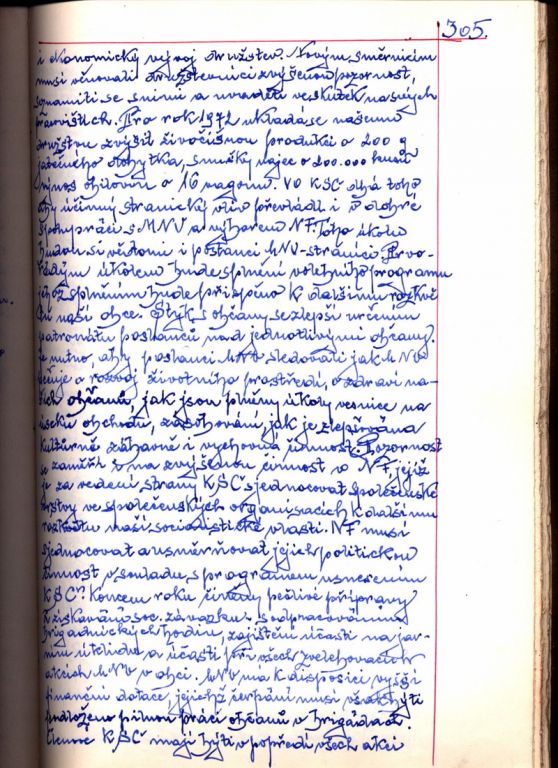 305.
i ekonomický vývoj družstev. Novým směrnicím
musí věnovati družstevníci zvýšenou pozornost,
seznámiti se s nimi a uváděti ve skutek na svých
pracovištích. Pro rok 1972 ukládá se našemu
družstvu zvýšit živočišnou produkci o 200 q
jatečného dobytka, snušky vajec o 200.000 kusů
výnos obilovin o 16 vagonů. VO KSČ dbá toho
aby účinný stranický vliv převládl i v dobré
spolupráci s MNV a výborem NF. Toho úkolu
budou si vědomi i poslanci MNV - straníci. Prvo-
řadým úkolem bude splnění volebního programu
jehož splněním bude přispěno k dalšímu rozkvě-
tu naší obce. Styk s občany se zlepší určením
patronátu poslanců nad jednotlivými občany.
Je nutno, aby poslanci MNV sledovali jak MNV
pečuje o rozvoj životního prostředí, o zdraví na-
šich občanů, jak jsou plněny úkoly vesnice na
úseku obchodu, zásobování, jak je zlepšována
kulturně zábavná i výchovná činnost. Pozornost
se zaměří i na zvýšenou činnost v NF, jejíž
je za vedení strany KSČ sjednocovat společenské
vrstvy ve společenských organisacích k dalšímu
rozkvětu naší socialistické vlasti. NF musí
sjednocovat a usměrňovat jejich politickou
činnost v souladu s programem usnesením
KSČ. Koncem roku činěny pečlivé přípravy
k získávání soc. závazků s odpracováním
brigádnických hodin, zajištění účasti na jar-
ním úklidu a účasti při všech zvelebovacích
akcích MNV v obci. MNV má k disposici vyšší
finanční dotace, jejichž čerpání musí však býti
podloženo pilnou prací občanů v brigádách.
Členové KSČ mají býti v popředí všech akcí